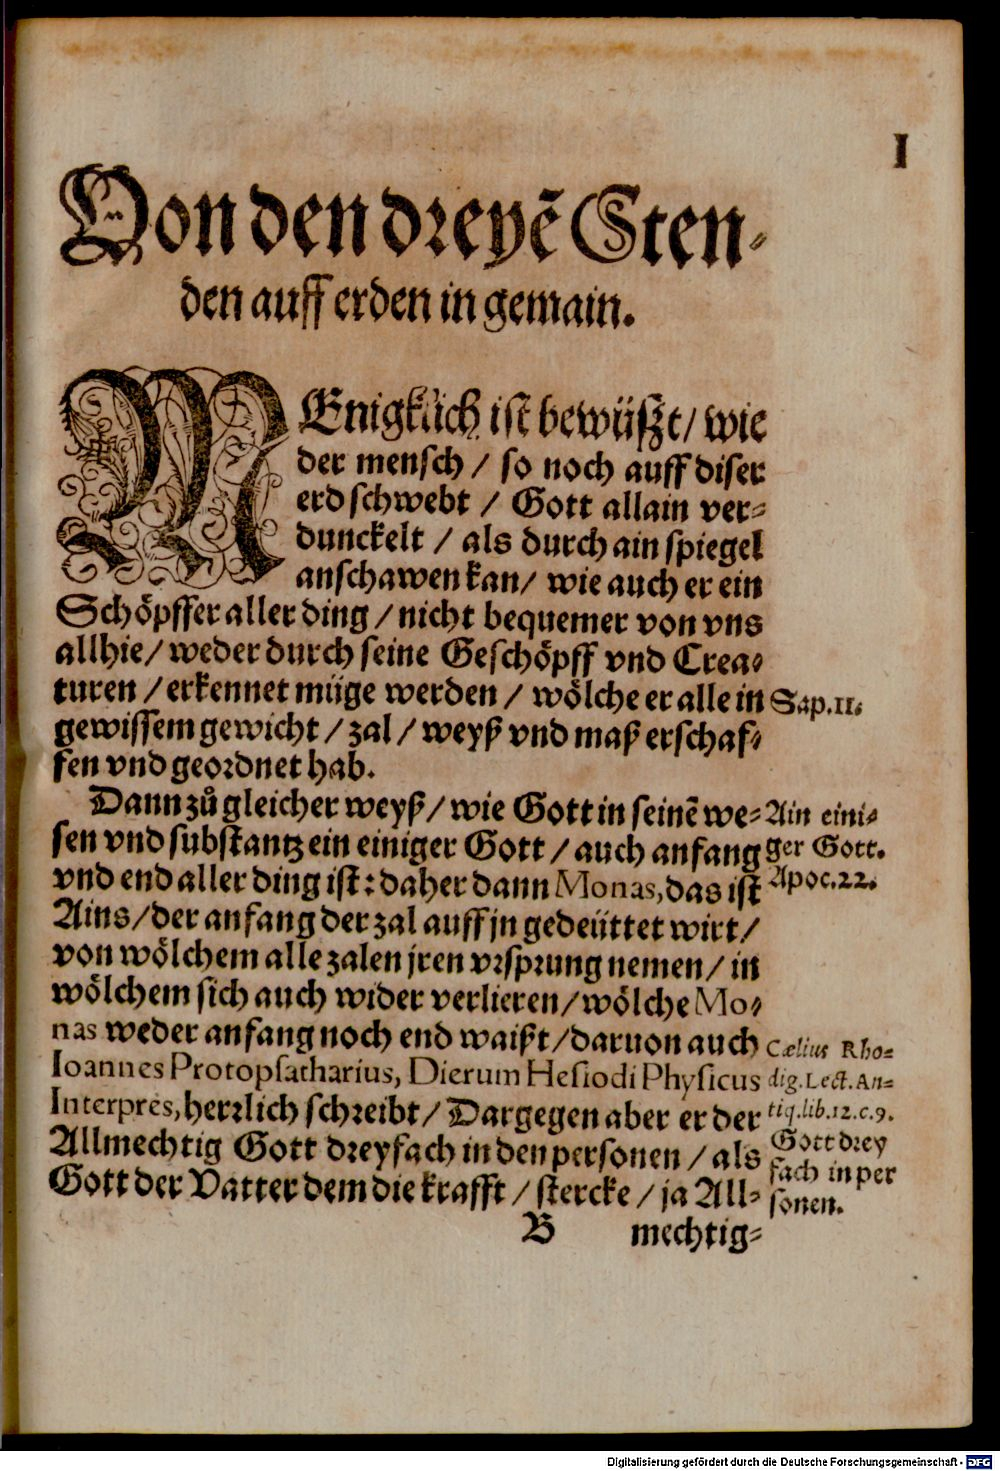 I
Von den dreyẽ Sten-
den auff erden in gemain.
MEnigklich ist bewüßt/ wie
der mensch / so noch auff diser
erd schwebt / Gott allain ver-
dunckelt / als durch ain spiegel
anschawen kan/ wie auch er ein
Schöpffer aller ding / nicht bequemer von vns
allhie/ weder durch seine Geschöpff vnd Crea-
turen / erkennet müge werden / wölche er alle in
Sap.11.
gewissem gewicht / zal / weyß vnd maß erschaf-
fen vnd geordnet hab.
Dann zů gleicher weyß/ wie Gott in seinẽ we-
Ain eini-
sen vnd substantz ein einiger Gott / auch anfang
ger Gott.
vnd end aller ding ist: daher dann Monas, das ist
Apoc.22.
Ains/der anfang der zal auff jn gedeüttet wirt/
von wölchem alle zalen jren vrsprung nemen/ in
wölchem sich auch wider verlieren/wölche Mo-
nas weder anfang noch end waißt/daruon auch
Cælius Rho-
Ioannes Protopsatharius, Dierum Hesiodi Physicus
dig. Lect. An-
Interpres, herrlich schreibt/ Dargegen aber er der
tiq. lib. 12. c. 9.
Allmechtig Gott dreyfach in den personen / als
Gott drey
fach in per
Gott der Vatter dem die krafft / stercke / ja All-
sonen.
B mechtig-
Digitalisierung gefördert durch die Deutsche Forschungsgemeinschaft - DFG